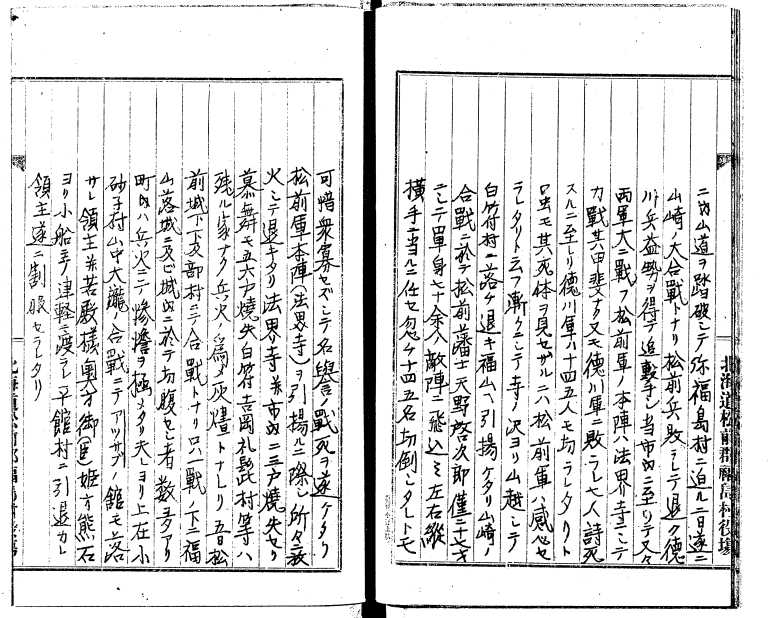 北海道松前郡福島村役場
ニ内山道ヲ踏破シテ弥福島村ニ迫ル二日遂ニ
山崎ノ大合戰トナリ松前兵敗ラレテ退ク德
川兵益勢ヲ得テ追撃シ当市内ニ至リテ又々
両軍大ニ戰フ松前軍ノ本陣ハ法界寺ニシテ
力戰其甲斐ナク又モ德川軍ニ敗ラレ七人討死
スルニ至レリ德川軍ハ十四五人モ切ラレタリト
モ其死体ヲ見セザルニハ松前軍ハ感心セ
ラレタリト云フ漸クニシテ寺ノ沢ヨリ山越シテ
白符村ニ落ケ退キ福山ヘ引揚ケタリ山崎ノ
合戰ニ於テ松前藩士天野啓次郎僅二十七才
ニシテ單身七十余人敵陣ニ飛込ミ左右縱
横手ニ当ルニ仕セ忽ケ十四五名切倒シタレトモ
可惜衆寡セズシテ名譽ノ戰死ヲ遂ケタリ
松前軍本陣(法界寺)ヲ引揚ルニ際シ所々放
火シテ退キタリ法界寺并市内二三戸燒失セリ
慕舞モ五六戸燒失白符吉岡礼髭村等ハ
残ル家ナク兵火ノ爲メ灰燼トナレリ五日松
前城下下及部村ニテノ合戰トナリ口ハ戰ノ下ニ福
山落城ニ及ビ城内ニ於テ切腹セシ者数多アリ
町内ハ兵火ニテ惨憺ヲ極メタリ夫レヨリ上在小
砂子村山中大瀧ノ合戰ニテアツサブノ館モ落
サレ領主并若殿様奥方御(匡)姫方熊石
ヨリ小船ニテ津軽ニ渡ラレ平館村ニ引退カレ
領主遂ニ割服セラレタリ